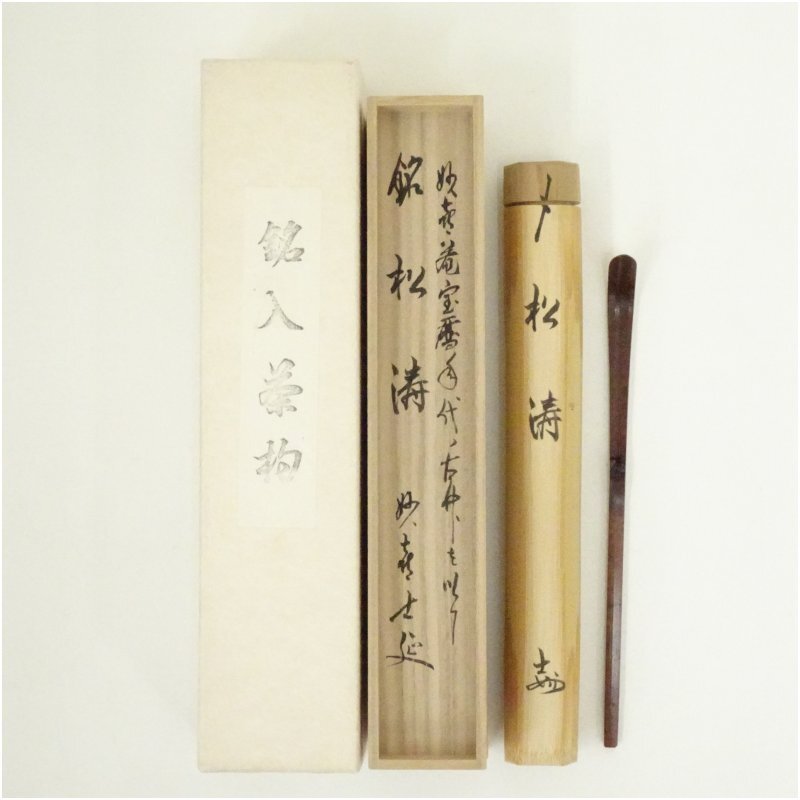 銘入茶杓
妙喜菴宝暦年代ノ古竹ヲ以テ
銘 松涛
妙喜士延
松涛